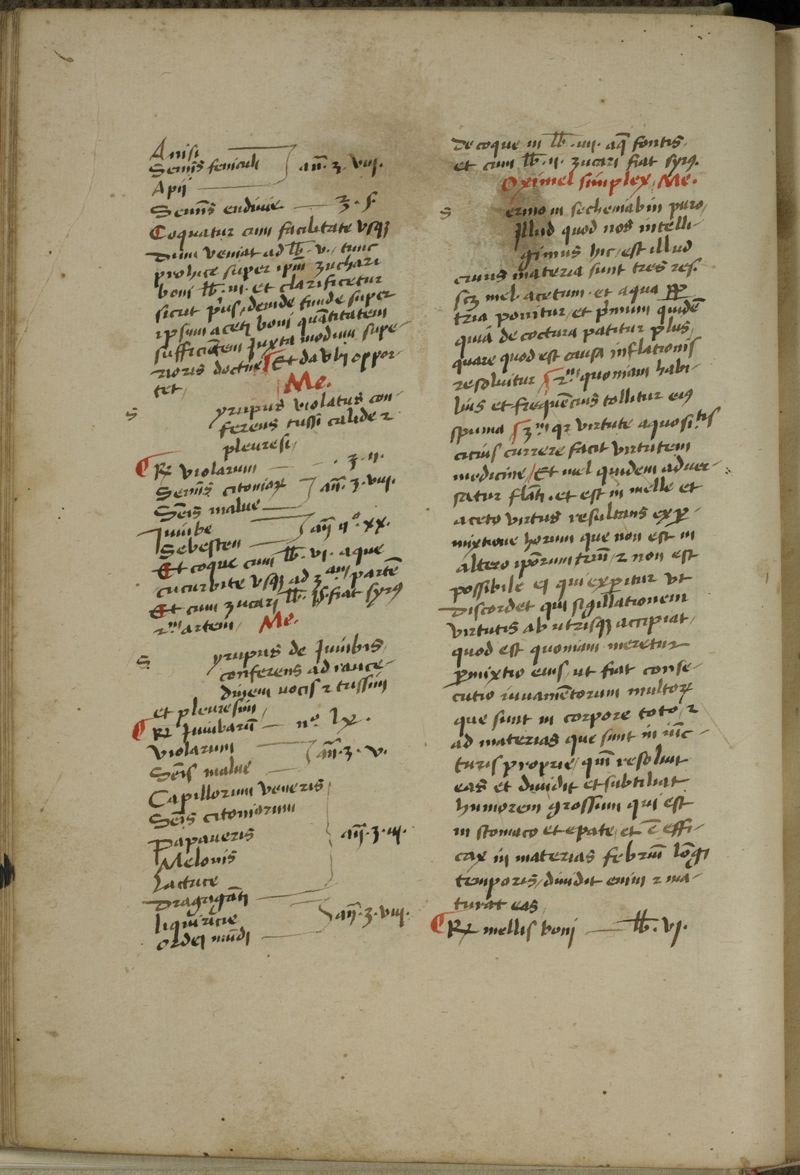 Anisi
Semis feniculi añ. ʒ. viij.
Apij
Semis endivie ʒ. s
Coquatur cum facilitate vsqʒ
Dum veniat ad lb. v. tunc
prohice super ipm zuchari
boni lb. iij. et clarificetur
sicut prius, deinde funde super
ipsum aceti boni quãtitatem
sufficiẽtem Juxta modum supe-
rioris doctrine Et da vbi oppor-
tet. Me.
s yrupus violatus con-
ferens tussi calide ⁊
pleuresi
R violarum ʒ. ij.
Semis citonioꝝ añ. ʒ. viij.
Seis malue
Juiube
Sebesten añ nº. xx.
Et coque cum lb. vi. aque
cucurbite vsqʒ ad 3am partẽ
Et cum zucari lb. js. fiat syrꝯ
2m artem Me.
s yrupus de Juiubis
conferens ad rauce-
dinem uocis ⁊ tussim
et pleuresim
R Juiubarũ nº lx.
violarum
Seis malue añ. ʒ. v.
Capillorum veneris
Seis citoniorum
papaueris
Melonis añ. ʒ. iij.
Lactuce
Dragagãti
liquiricie
ordei mũdi añ. ʒ. viij.
Decoque in lb. iiij. aq̃ fontis
et cum lb. ij. zucari fiat syrꝯ.
Oximel simplex, Me.
s ermo in sechemabin puro
Illud quod nos intelli-
gimus hic, est illud
cuius materia sunt tres res.
scʒ mel acetum. et aqua ꝑꝑ
tria ponitur, et p̃mum quidẽ
quia decoctura patitur plus
quare quod est causa inflationis
resoluitur, 2m quoniam habi-
lius et frequẽcius tollitur eiꝯ
spuma 3m qr virtute aquositis
citius currere facit virtutem
medicine, Et mel quidem aduer-
satur flãti. et est in melle et
aceto virtus resultans ex ꝑ-
mixtione horum que non est in
altero ipõrum trium ⁊ non est
possibile ei qui experitur vt
Discordet qui sigillationem
virtutis ab utrisqʒ accipiat,
quod est quoniam meretur
ꝑmixtio eius, ut fiat conse-
cutio iuuamẽtorum multoꝝ
que sunt in corpore toto, ⁊
ad materias que sunt in iũc-
turis proprie, qm̃ resoluit
eas et diuidit et subtiliat
humorem grossum qui est
in stomaco et epate, et ẽ effi-
cax in materias febrium lõgi
temporis, diuidit enim ⁊ ma-
turat eas
R mellis boni lb. vj.